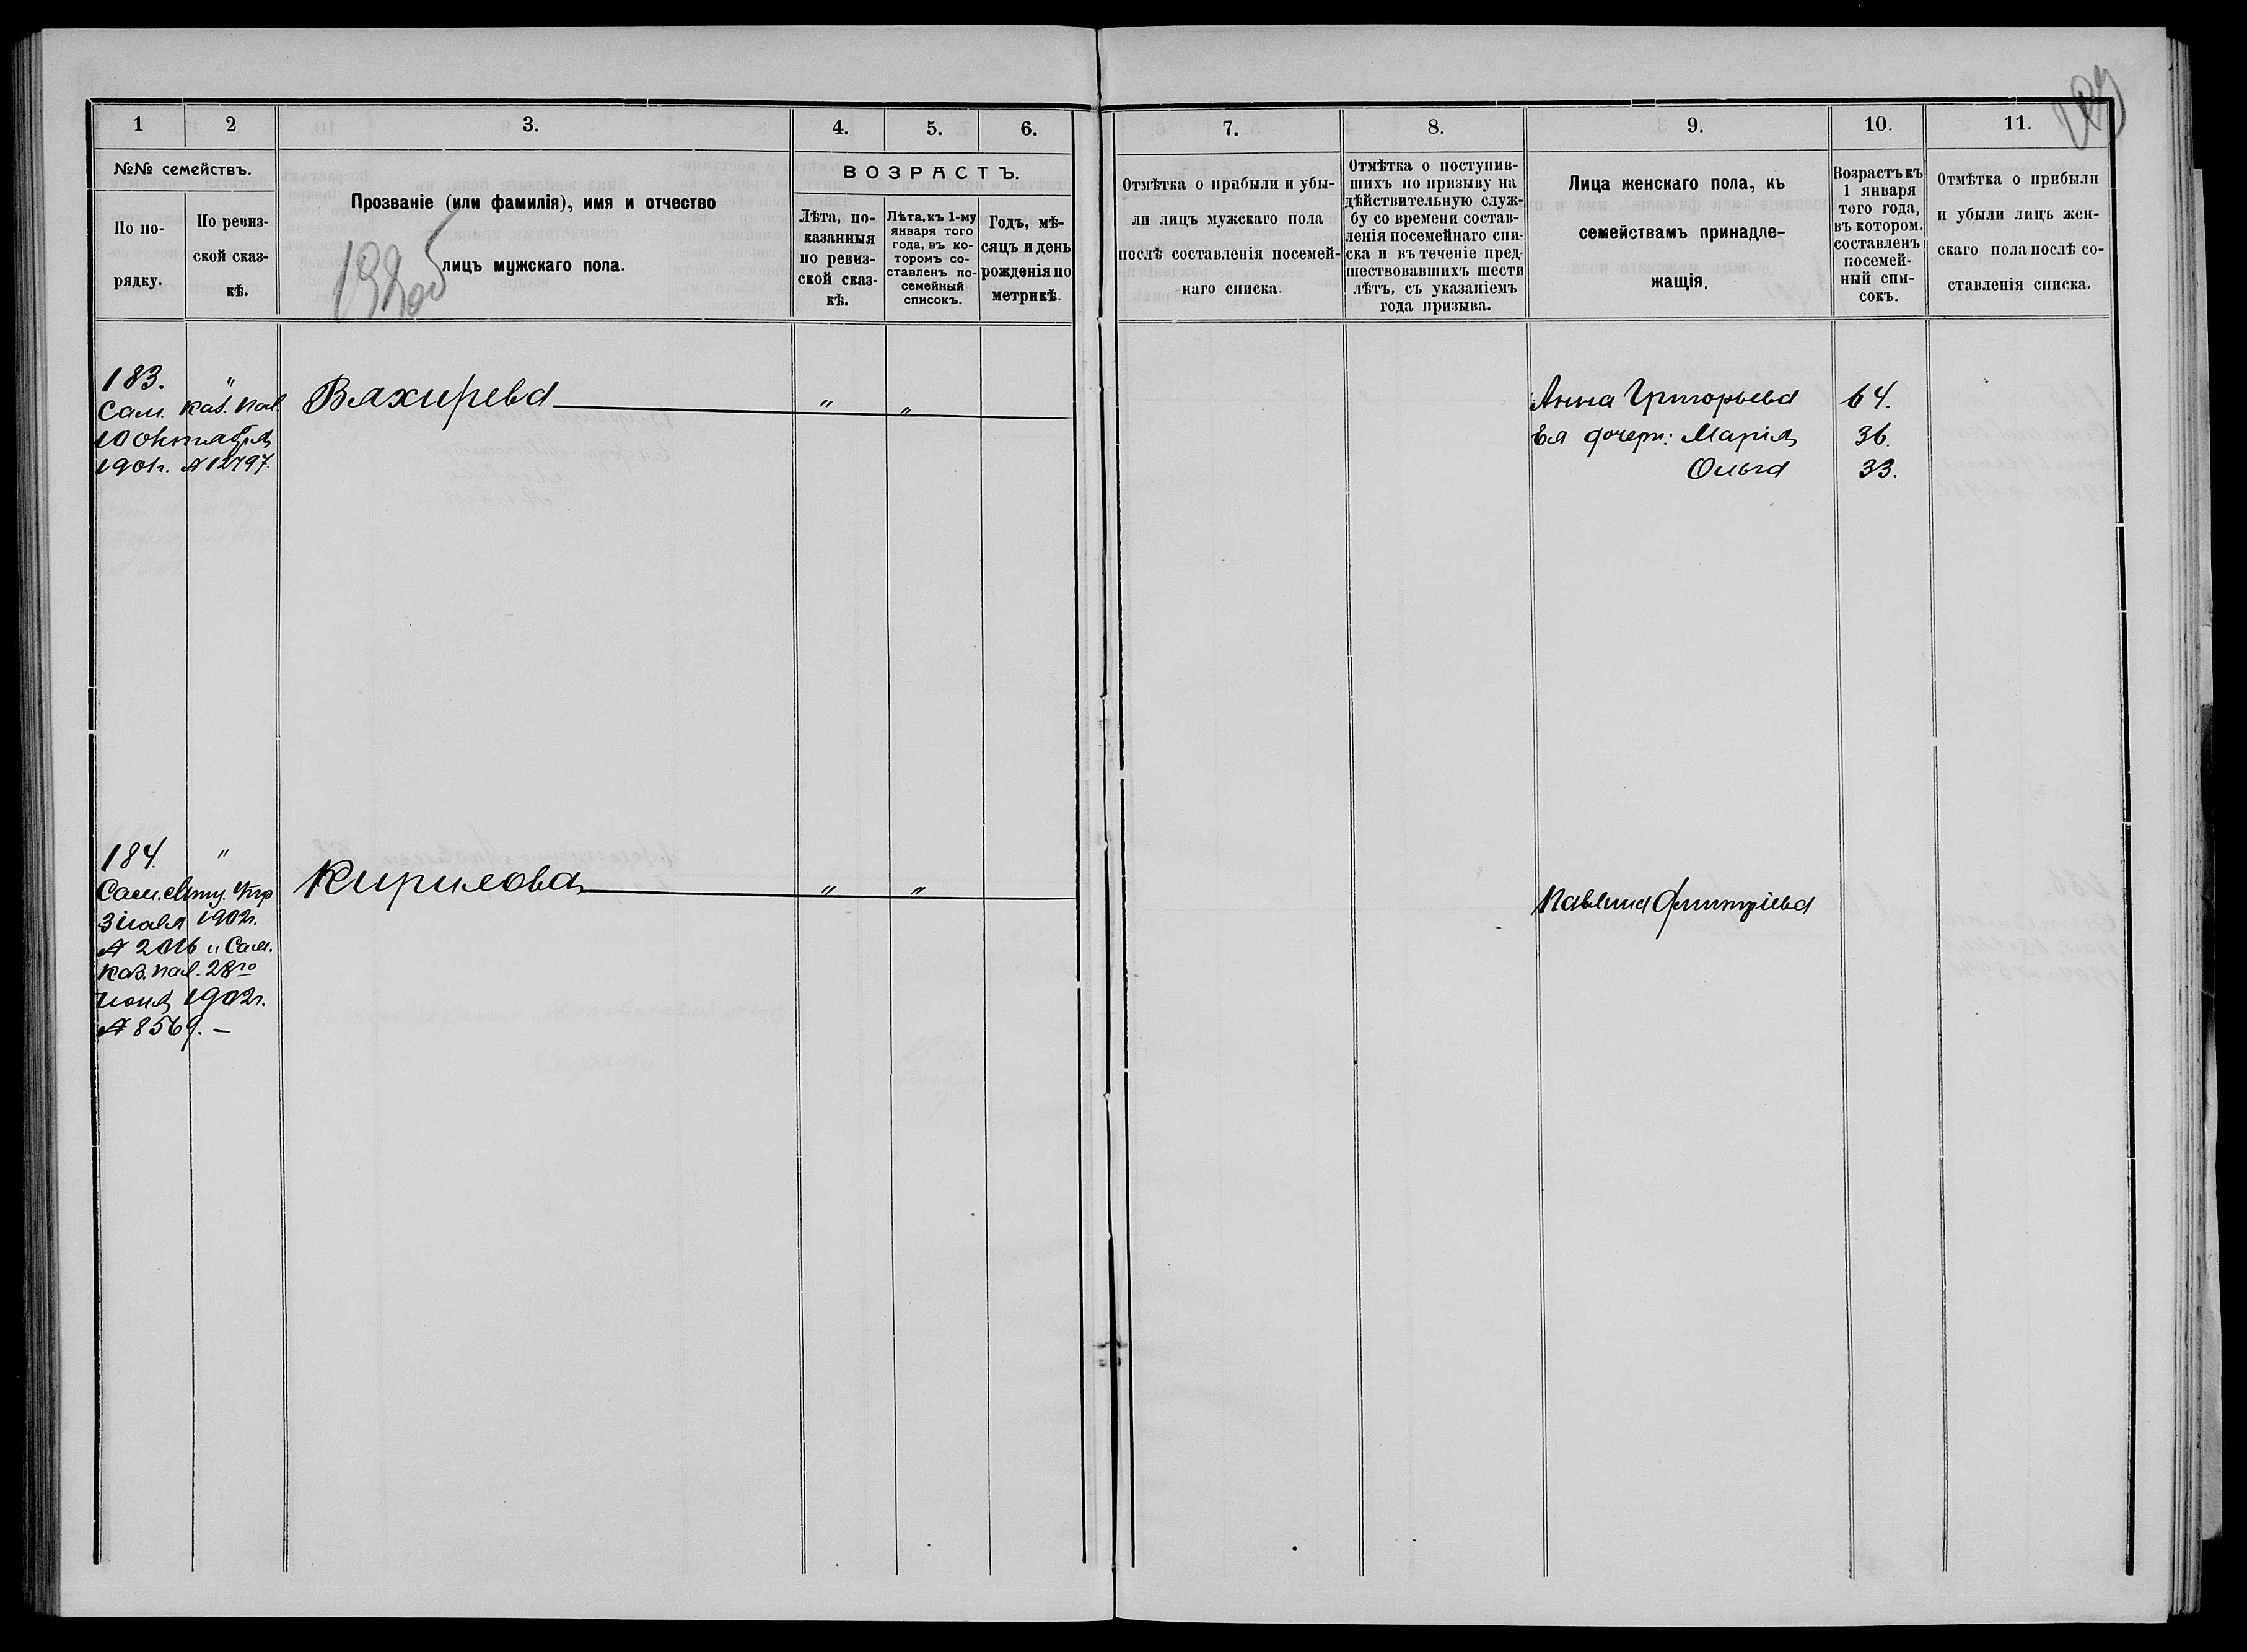 1 2 3. 4. 5. 6. 7. 8. 9. 10. 11.
№№ семействъ.
По по-
рядку.
По ревиз-
ской сказ-
кѣ.
Прозваніе (или фамилія), имя и отчество
лицъ мужскаго пола.
ВОЗРАСТЪ.
Лѣта, по-
казанныя
по ревиз-
ской сказ-
кѣ.
Лѣта, къ 1-му
января того
года, въ ко-
торомъ со-
ставленъ по-
семейный
списокъ.
Годъ, мѣ-
сяцъ и день
рожденія по
метрикѣ.
Отмѣтка о прибыли и убы-
ли лицъ мужскаго пола
послѣ составленія посемей-
наго списка.
Отмѣтка о поступив-
шихъ по призыву на
дѣйствительную служ-
бу со времени состав-
ленія посемейнаго спи-
ска и въ теченіе пред-
шествовавшихъ шести
лѣтъ, съ указаніемъ
года призыва.
Лица женскаго пола, къ
семействамъ принадле-
жащія.
Возрастъ къ
1 января
того года,
въ котором.
составленъ
посемей-
ный спи-
сокъ.
Отмѣтка о прибыли
и убыли лицъ жен-
скаго пола послѣ со-
ставленія списка.
183. "
Сам. каз. пал.
10 октября
1901г. № 12797.
Вахирева " "
Анна Григорьева 64.
Ея дочери: Марія 36.
Ольга 33.
184. "
Сам. мѣщ. упр
3 мая 1902г.
№ 2016 и Сам.
каз. пал. 28го
июня 1902г.
№ 8569. —
Кирилова " "
Павлина Дмитріева